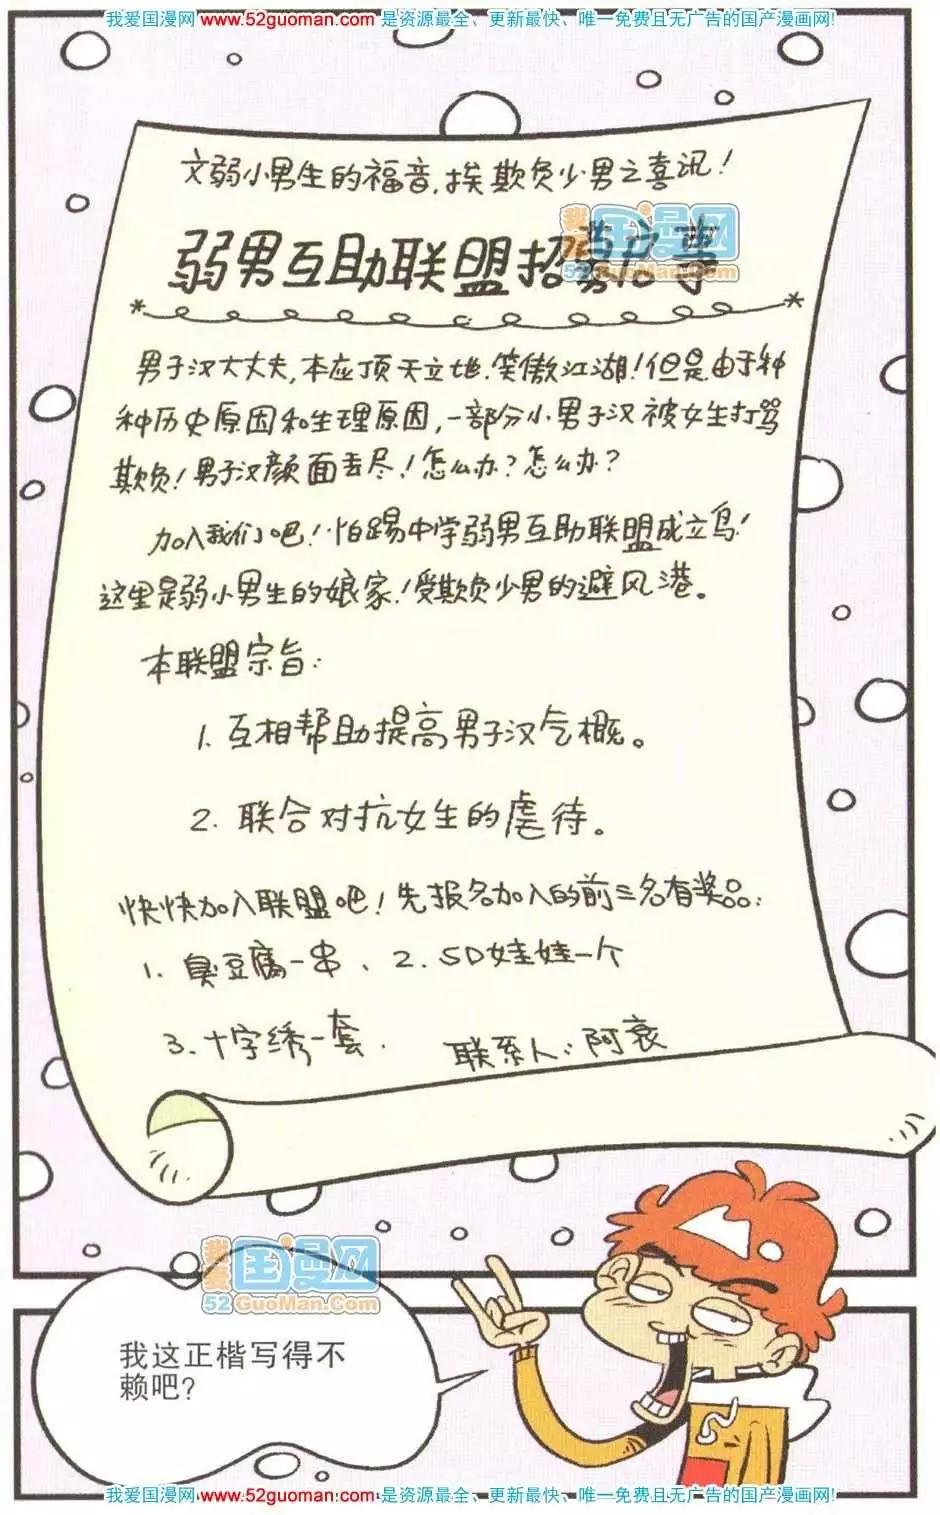 我爱国漫网 www.52guoman.com 是资源最全、更新最快、唯一免费且无广告的国产漫画网!
文弱小男生的福音,挨欺负少男之喜讯!
弱男互助联盟招募启事
我爱国漫网
52GuoMan.Com
男子汉大丈夫,本应顶天立地、笑傲江湖!但是由于种
种历史原因和生理原因,一部分小男子汉被女生打骂
欺负!男子汉颜面丢尽!怎么办?怎么办?
加入我们吧!怕踢中学弱男互助联盟成立鸟!
这里是弱小男生的娘家!受欺负少男的避风港。
本联盟宗旨:
1. 互相帮助提高男子汉气概。
2. 联合对抗女生的虐待。
快快加入联盟吧!先报名加入的前三名有奖品:
1. 臭豆腐一串、2. SD娃娃一个
3. 十字绣一套. 联系人:阿衰
我爱国漫网
52GuoMan.Com
我这正楷写得不
赖吧?
我爱国漫网 www.52guoman.com 是资源最全、更新最快、唯一免费且无广告的国产漫画网!